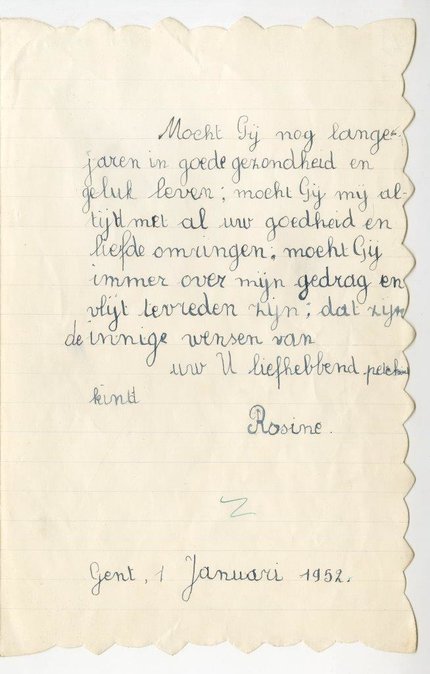 Mocht Gij nog lange
jaren in goede gezondheid en
geluk leven; mocht Gij mij al-
tijd met al uw goedheid en
liefde omringen; mocht Gij
immer over mijn gedrag en
vlijt tevreden zijn; dat zijn
de innige wensen van
uw U liefhebbend
kind
Rosine.
Gent, 1 Januari 1952.